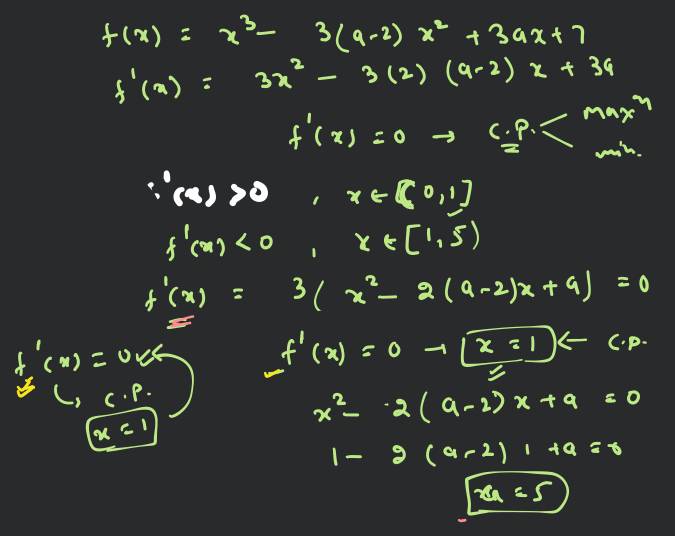 f(x) = x³ - 3(a-2) x² + 3ax + 7
f'(x) = 3x² - 3(2) (a-2) x + 3a
f'(x) = 0 → C.P. < maxᵐ
min.
f'(x) > 0 , x ∈ [0,1]
f'(x) < 0 , x ∈ [1,5)
f'(x) = 3( x² - 2(a-2)x + a) = 0
f'(x) = 0
↳ C.P.
x = 1
f'(x) = 0 → x = 1 ← C.P.
x² - 2(a-2)x + a = 0
1 - 2(a-2) 1 + a = 0
a = 5